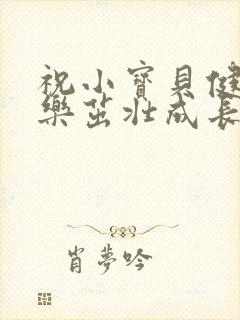 祝小寶貝健
樂茁壯成長
肖夢吟